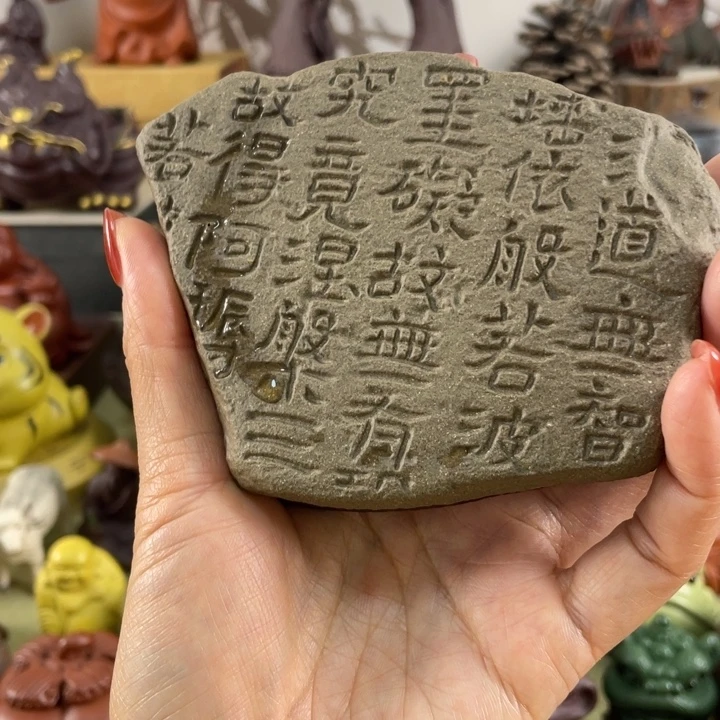 道無智
埵依般若波
罣礙故無有
究竟涅槃三
故得阿耨
若